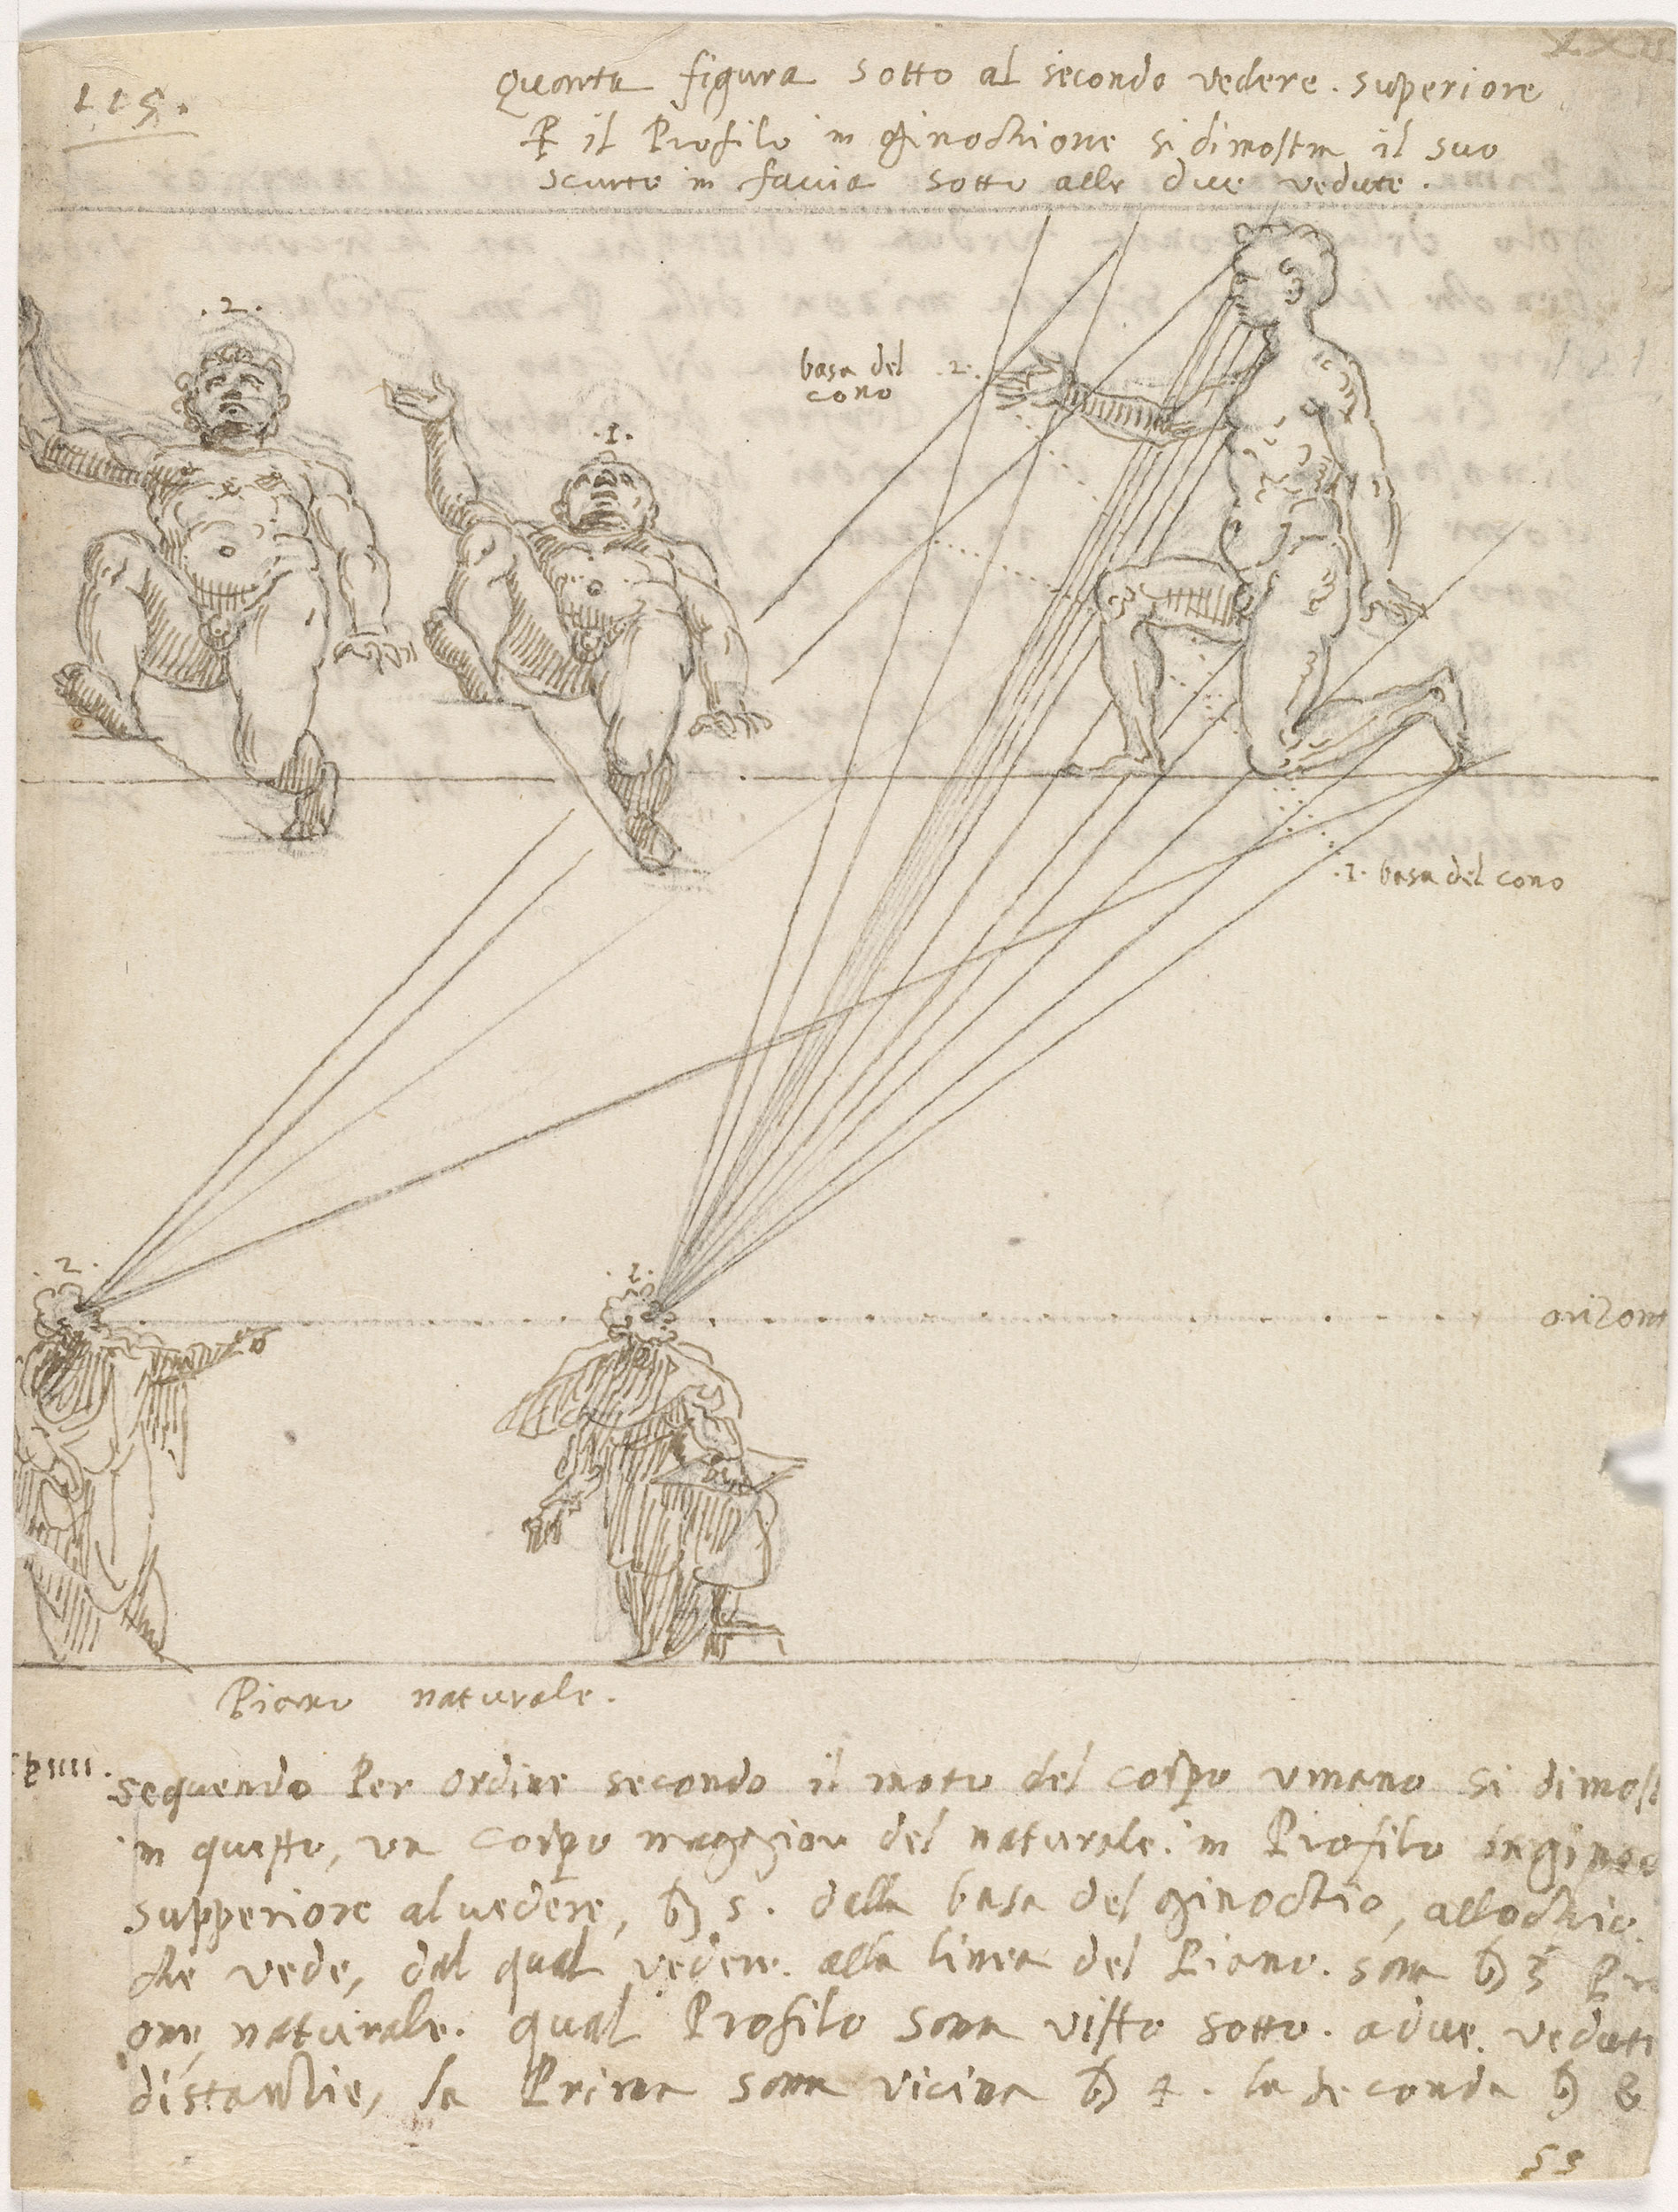 115.
Quarta figura sotto al secondo vedere. superiore
P il Profilo in ginochione si dimostra il suo
scurto in faccia sotto alle due vedute.
.2.
.1.
basa del .2.
cono
.1. basa del cono
.2.
.1.
orizont
Piano naturale.
sequendo Per ordine secondo il moto del corpo umano si dimost
in questo, un corpo maggior del naturale. in Profilo inginoc
supperiore al vedere, 5. dalla basa del ginochio, allochio
che vede, dal qual vedere. alla linea del Piano. sara
naturale. qual Profilo sara visto sotto. a due. vedute
distantie, la Prima sara vicina 4. la seconda
53